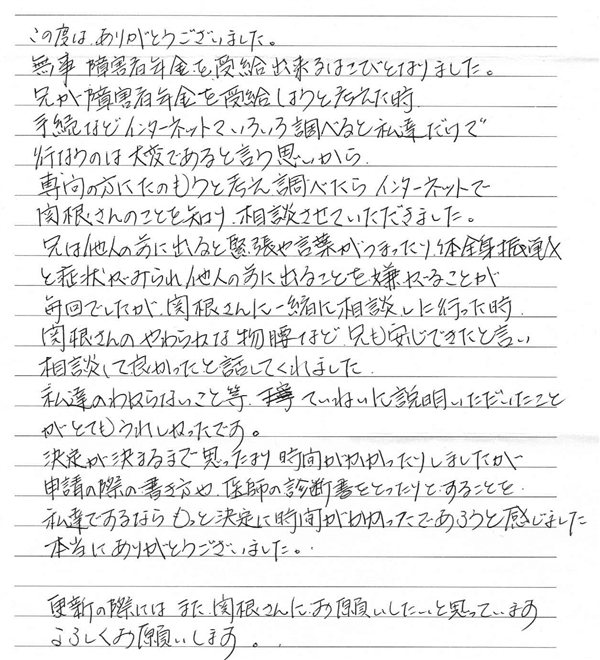 この度は、ありがとうございました。
無事 障害者年金を受給出来るはこびとなりました。
兄が障害者年金を受給しようと考えた時
手続などインターネットでいろいろ調べると私達だけで
行なうのは大変であると言う思いから、
専向の方にたのもうと考え調べたらインターネットで
関根さんのことを知り、相談させていただきました。
兄は他人の前に出ると緊張や言葉がつまったり、体全身振るえ
と症状がみられ他人の前に出ることを嫌がることが
毎回でしたが、関根さんに一緒に相談しに行った時、
関根さんのやわらかな物腰など兄も安心できたと言い
相談して良かったと話してくれました。
私達のわからないこと等、ていねいに説明いただいたこと
がとてもうれしかったです。
決定が決まるまで思ったより時間がかかったりしましたが
申請の際の書き方や、医師の診断書をとったりとすることを
私達であるならもっと決定に時間がかかったであろうと感じました
本当にありがとうございました。
更新の際には また、関根さんにお願いしたいと思っています
よろしくお願いします。